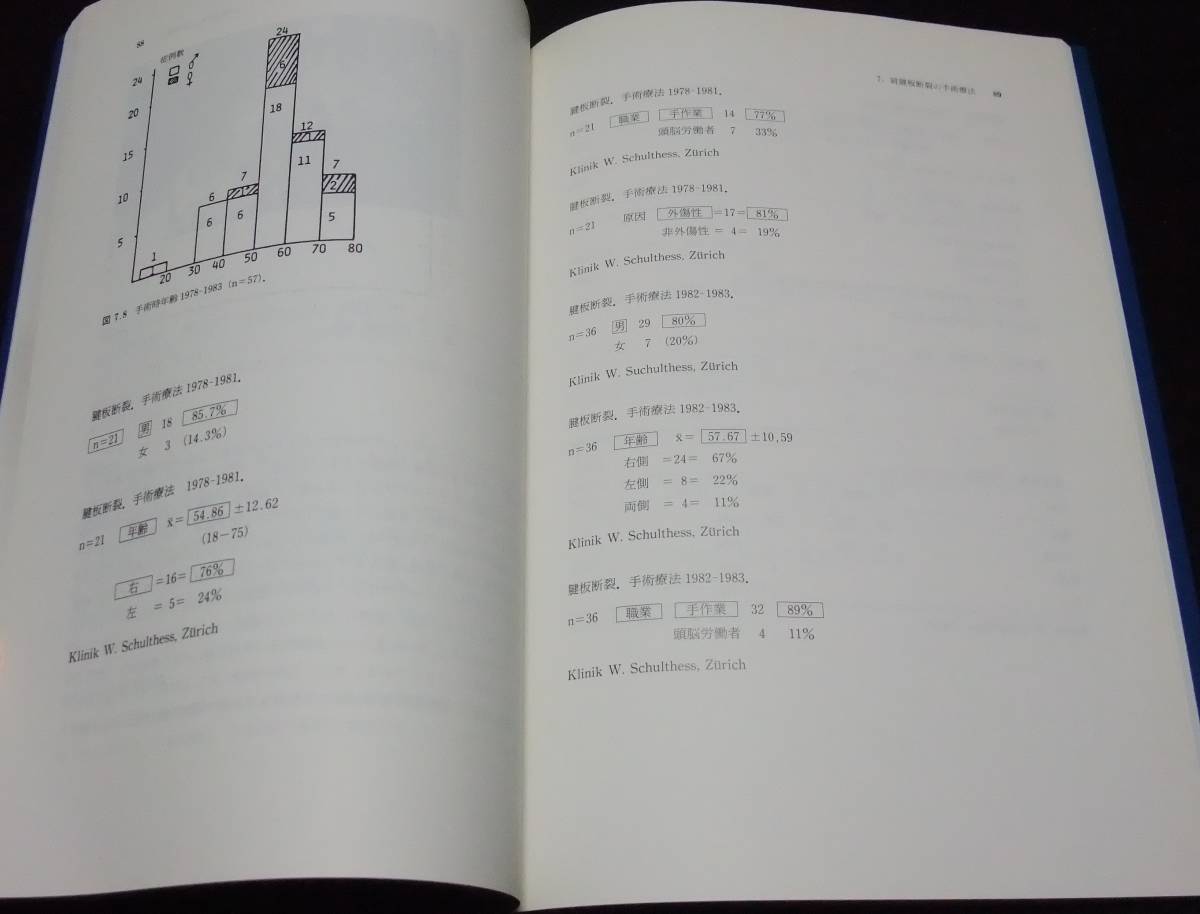 88
症例数
♂
♀
24
20
15
10
5
1
6
6
7
1
6
24
6
18
12
1
11
7
2
5
20 30 40 50 60 70 80
図 7.8 手術時年齢 1978-1983 (n=57).
腱板断裂．手術療法 1978-1981.
n=21 男 18 85.7%
女 3 (14.3%)
腱板断裂．手術療法 1978-1981.
n=21 年齢 x̄= 54.86 ±12.62
(18-75)
右 =16= 76%
左 = 5= 24%
Klinik W. Schulthess, Zürich
7. 肩腱板断裂の手術療法 89
腱板断裂．手術療法 1978-1981.
n=21 職業 手作業 14 77%
頭脳労働者 7 33%
Klinik W. Schulthess, Zürich
腱板断裂．手術療法 1978-1981.
n=21 原因 外傷性 =17= 81%
非外傷性 = 4= 19%
Klinik W. Schulthess, Zürich
腱板断裂．手術療法 1982-1983.
n=36 男 29 80%
女 7 (20%)
Klinik W. Suchulthess, Zürich
腱板断裂．手術療法 1982-1983.
n=36 年齢 x̄= 57.67 ±10,59
右側 =24= 67%
左側 = 8= 22%
両側 = 4= 11%
Klinik W. Schulthess, Zürich
腱板断裂．手術療法 1982-1983.
n=36 職業 手作業 32 89%
頭脳労働者 4 11%
Klinik W. Schulthess, Zürich